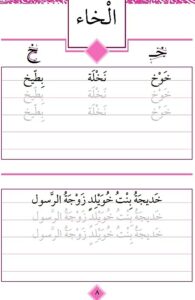 الْخاء
خـ ـخ
خَوْخ نَخْلَة بِطّيخ
خَوْخ نَخْلَة بِطّيخ
خَوْخ نَخْلَة بِطّيخ
خَديجَةُ بِنْتُ خُوَيْلِدٍ زَوْجَةُ الرَّسول
خَديجَةُ بِنْتُ خُوَيْلِدٍ زَوْجَةُ الرَّسول
خَديجَةُ بِنْتُ خُوَيْلِدٍ زَوْجَةُ الرَّسول
٨